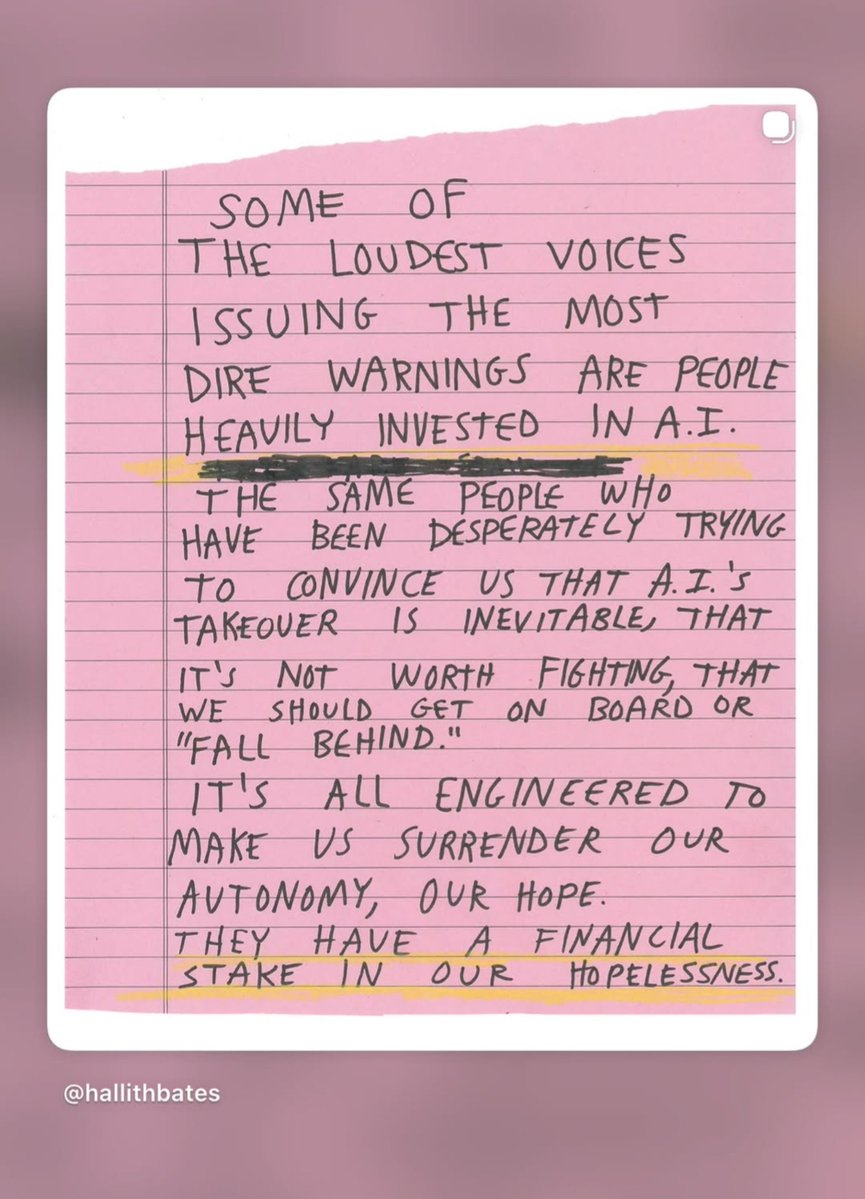 SOME OF
THE LOUDEST VOICES
ISSUING THE MOST
DIRE WARNINGS ARE PEOPLE
HEAVILY INVESTED IN A.I.
THE SAME PEOPLE WHO
HAVE BEEN DESPERATELY TRYING
TO CONVINCE US THAT A.I.'S
TAKEOVER IS INEVITABLE, THAT
IT'S NOT WORTH FIGHTING, THAT
WE SHOULD GET ON BOARD OR
"FALL BEHIND."
IT'S ALL ENGINEERED TO
MAKE US SURRENDER OUR
AUTONOMY, OUR HOPE.
THEY HAVE A FINANCIAL
STAKE IN OUR HOPELESSNESS.
@hallithbates